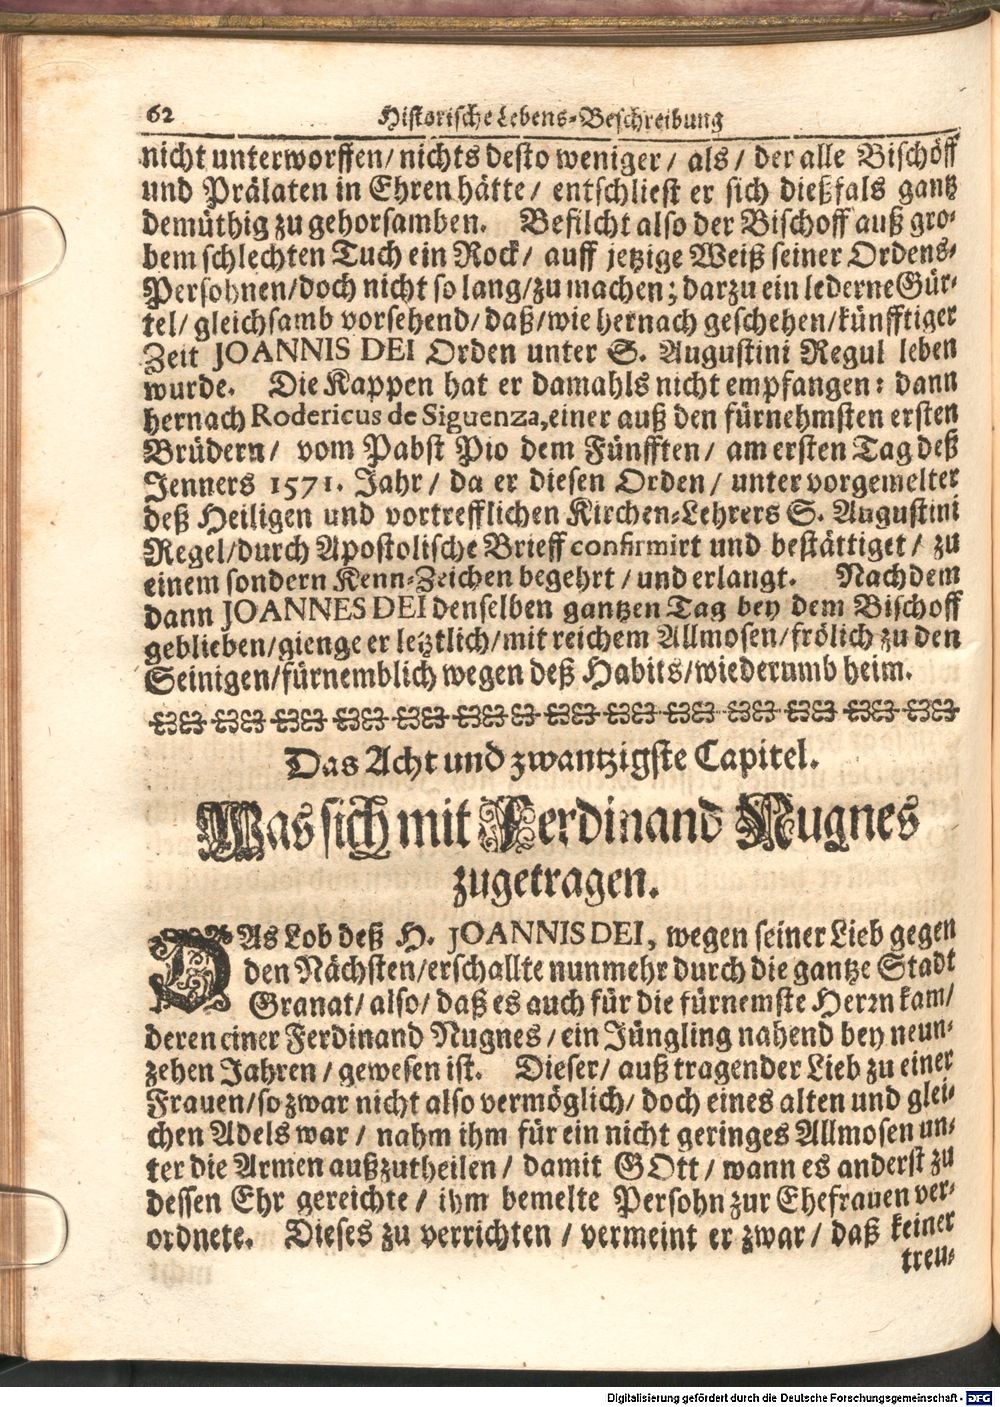 62 Historische Lebens-Beschreibung
nicht unterworffen/ nichts desto weniger/ als/ der alle Bischöff
und Prälaten in Ehren hätte/ entschliest er sich dießfals gantz
demüthig zu gehorsamben. Befilcht also der Bischoff auß gro-
bem schlechten Tuch ein Rock/ auff jetzige Weiß seiner Ordens-
Persohnen/doch nicht so lang/zu machen; darzu ein lederne Gür-
tel/ gleichsamb vorsehend/ daß/wie hernach geschehen/künfftiger
Zeit JOANNIS DEI Orden unter S. Augustini Regul leben
wurde. Die Kappen hat er damahls nicht empfangen: dann
hernach Rodericus de Siguenza,einer auß den fürnehmsten ersten
Brüdern/ vom Pabst Pio dem Fünfften/ am ersten Tag deß
Jenners 1571. Jahr/ da er diesen Orden/ unter vorgemelter
deß Heiligen und vortrefflichen Kirchen-Lehrers S. Augustini
Regel/durch Apostolische Brieff confirmirt und bestättiget/ zu
einem sondern Kenn-Zeichen begehrt/ und erlangt. Nachdem
dann JOANNES DEI denselben gantzen Tag bey dem Bischoff
geblieben/gienge er letztlich/mit reichem Allmosen/frölich zu den
Seinigen/fürnemblich wegen deß Habits/wiederumb heim.
Das Acht und zwantzigste Capitel.
Was sich mit Ferdinand Nugnes
zugetragen.
DAs Lob deß H. JOANNIS DEI, wegen seiner Lieb gegen
den Nächsten/erschallte nunmehr durch die gantze Stadt
Granat/ also/ daß es auch für die fürnemste Herrn kam/
deren einer Ferdinand Nugnes/ ein Jüngling nahend bey neun-
zehen Jahren/ gewesen ist. Dieser/ auß tragender Lieb zu einer
Frauen/so zwar nicht also vermöglich/ doch eines alten und glei-
chen Adels war/ nahm ihm für ein nicht geringes Allmosen un-
ter die Armen außzutheilen/ damit GOtt/ wann es anderst zu
dessen Ehr gereichte/ ihm bemelte Persohn zur Ehefrauen ver-
ordnete. Dieses zu verrichten/ vermeint er zwar/ daß keiner
treu-
Digitalisierung gefördert durch die Deutsche Forschungsgemeinschaft - DFG